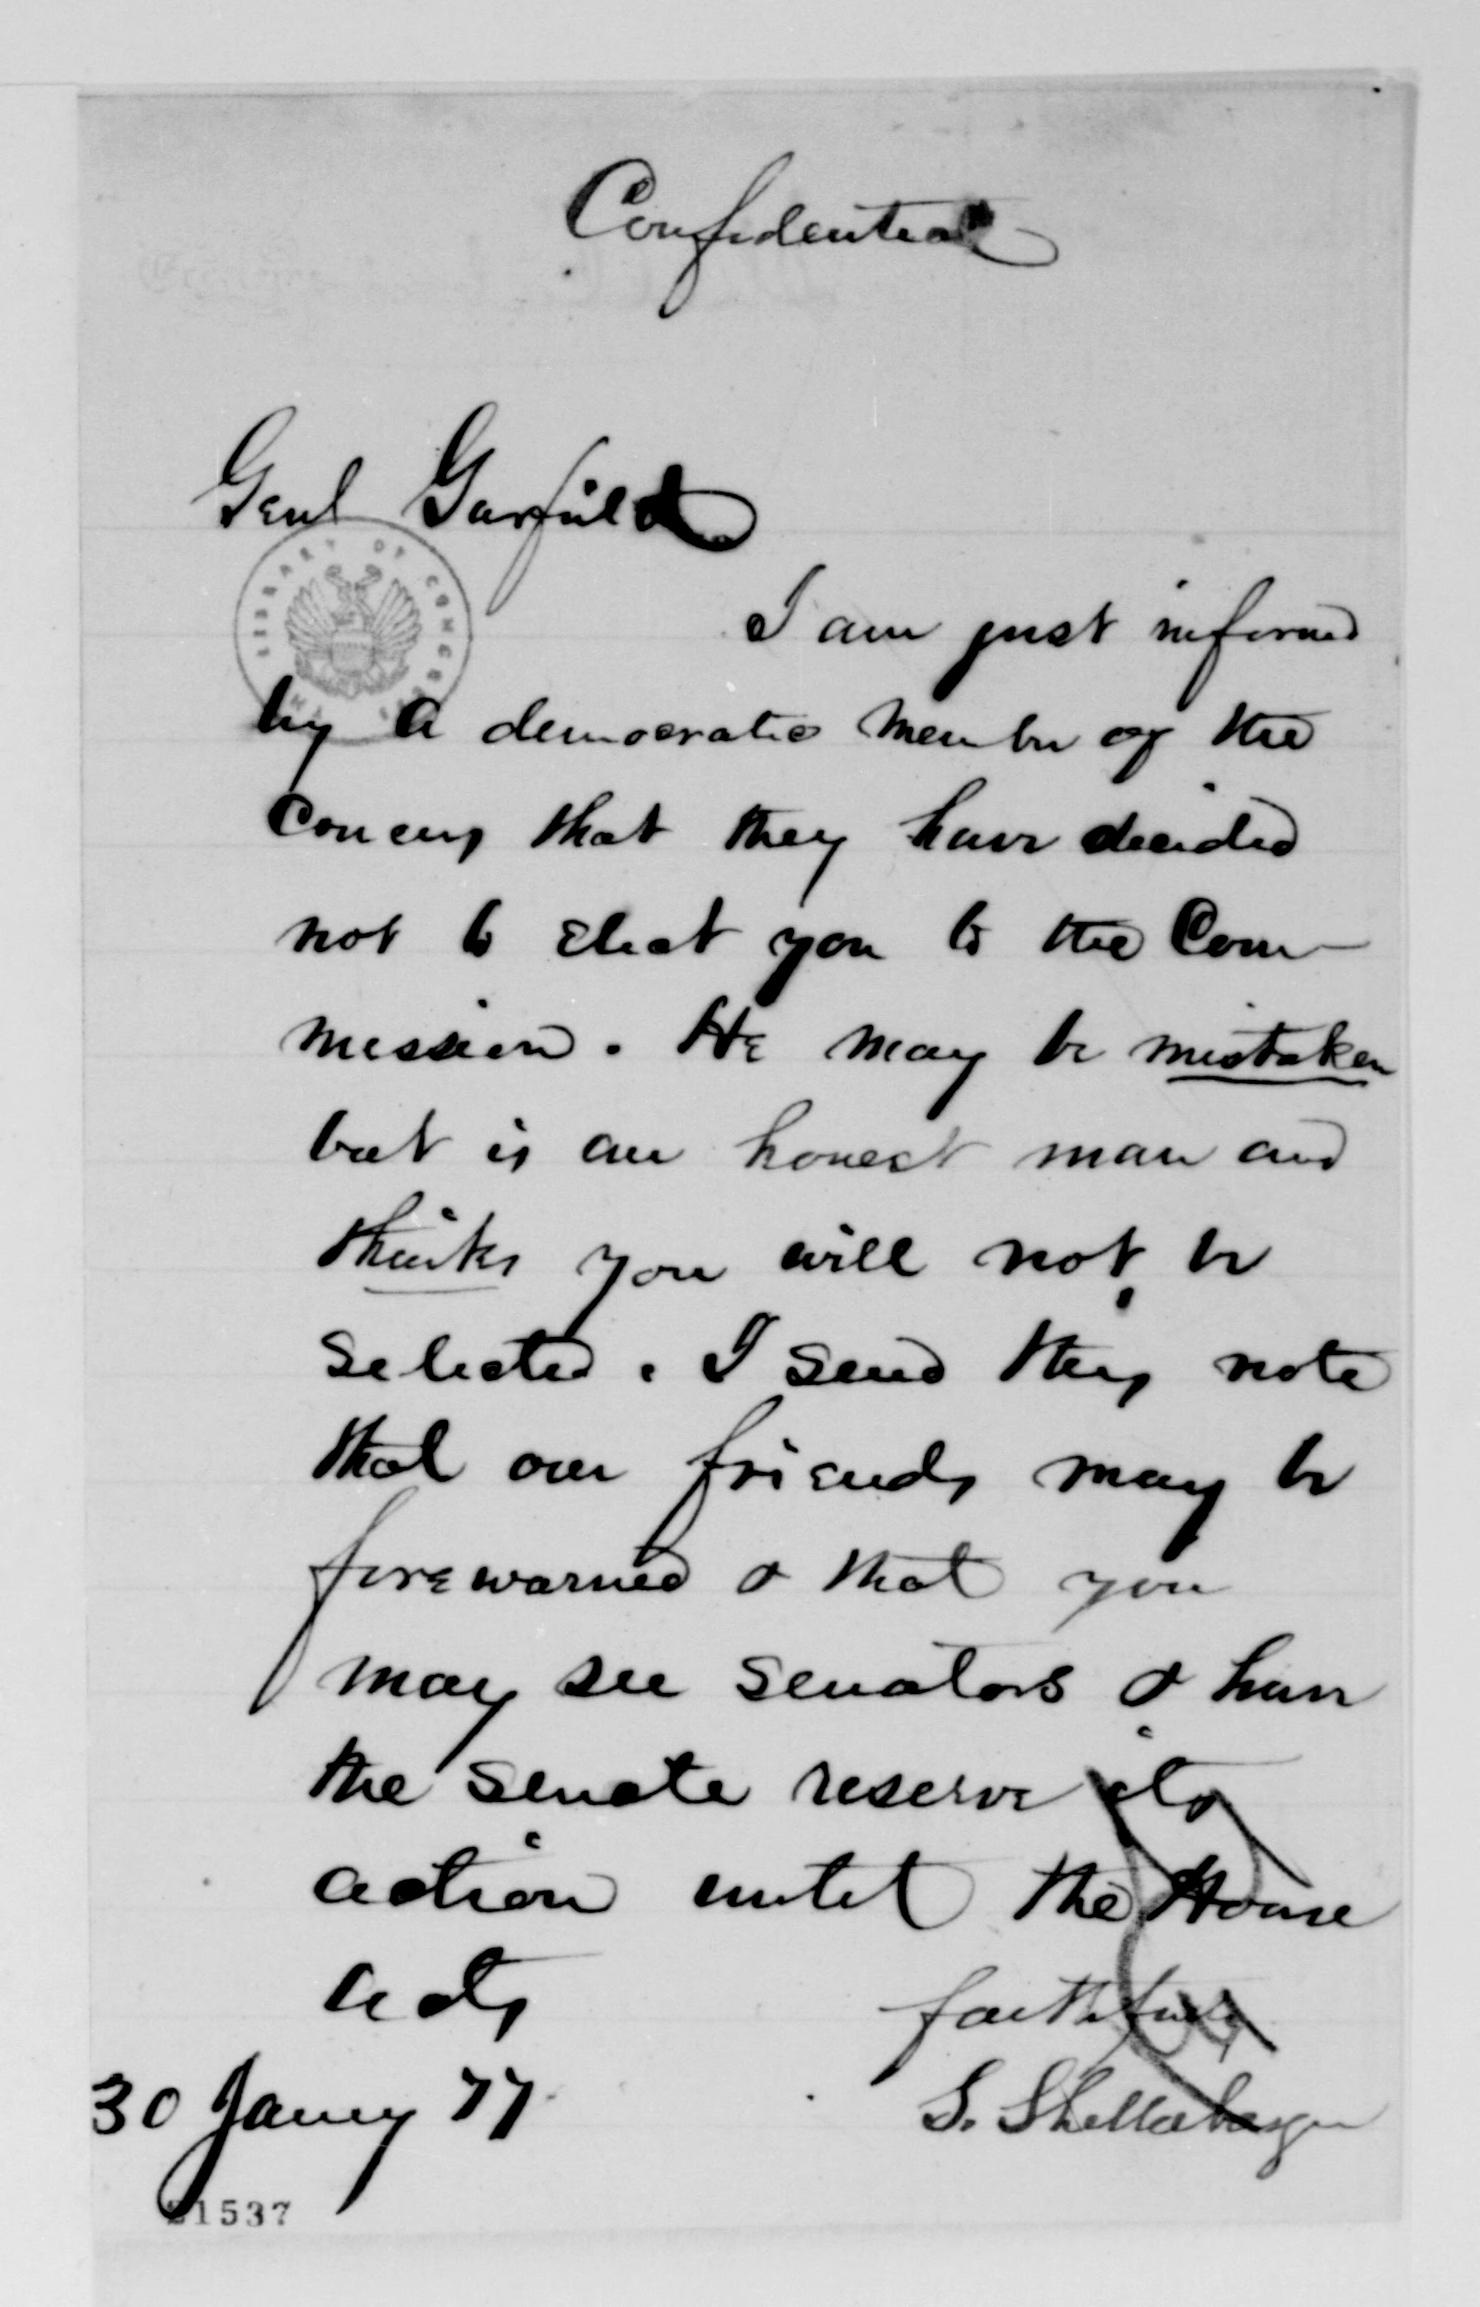 Confidential
Genl Garfield
LIBRARY OF CONGRESS
I am just informed
by a democratic member of the
Concus that they have decided
not to elect you to the Com-
mission. He may be mistaken
but is an honest man and
thinks you will not be
selected. I send this note
that our friends may be
forewarned & that you
may see senators & have
the senate reserve its
action until the House
acts
faithfully
S. Shellabarger
30 Jany 77
21537